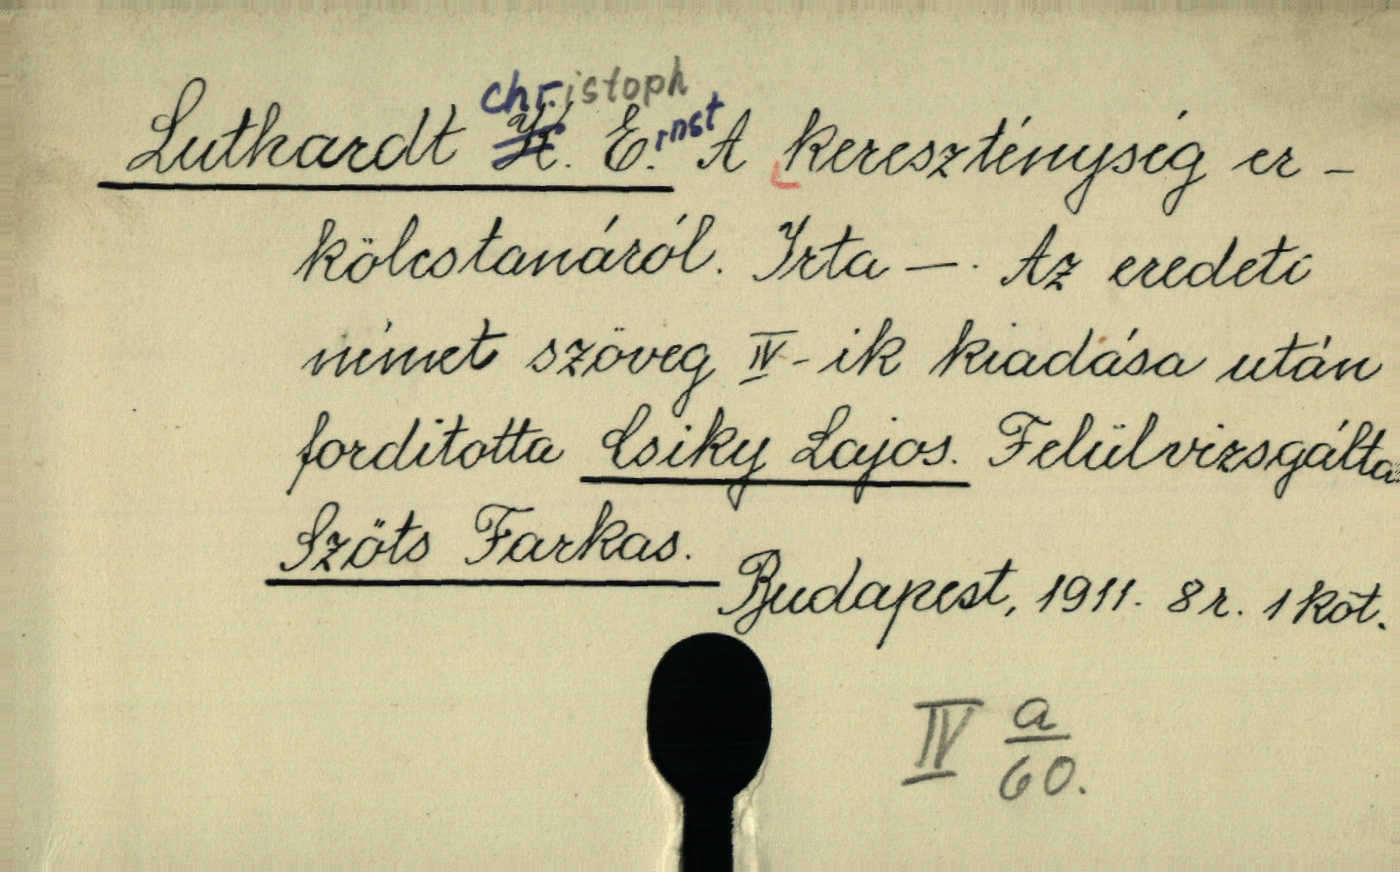 Christoph
Luthardt K. E.rnst A keresztény­ség er-
kölcstanáról. Irta —. Az eredeti
német szöveg IV-ik kiadása után
forditotta Csiky Lajos. Felülvizsgálta
Szöts Farkas.
Budapest, 1911. 8r. 1 köt.
IV a/60.